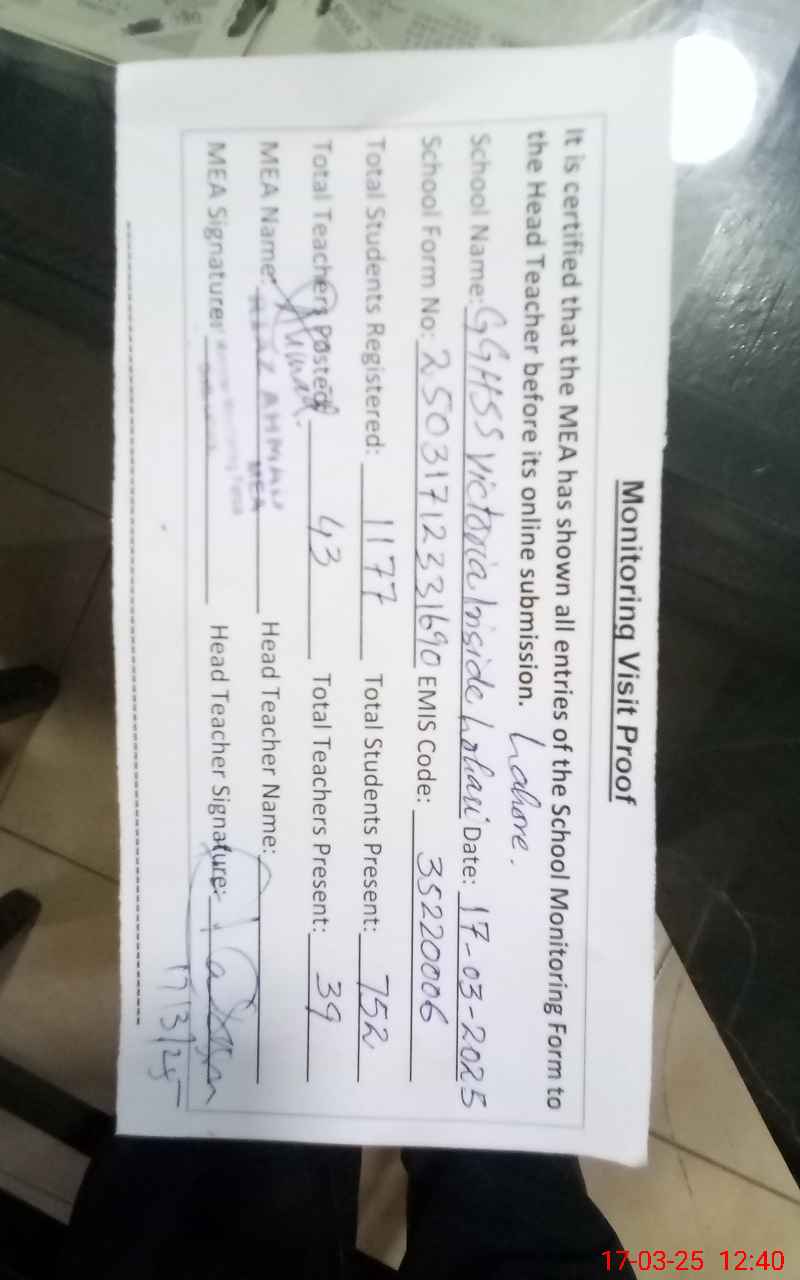 Monitoring Visit Proof
It is certified that the MEA has shown all entries of the School Monitoring Form to
the Head Teacher before its online submission. Lahore.
School Name: GGHSS Victoria Inside Lohari Date: 17-03-2025
School Form No: 25031712331690 EMIS Code: 35220006
Total Students Registered: 1177 Total Students Present: 752
Total Teachers Posted: 43 Total Teachers Present: 39
MEA Name: AHMAD Head Teacher Name:
MEA
MEA Signature: Head Teacher Signature:
17/3/25
17-03-25 12:40